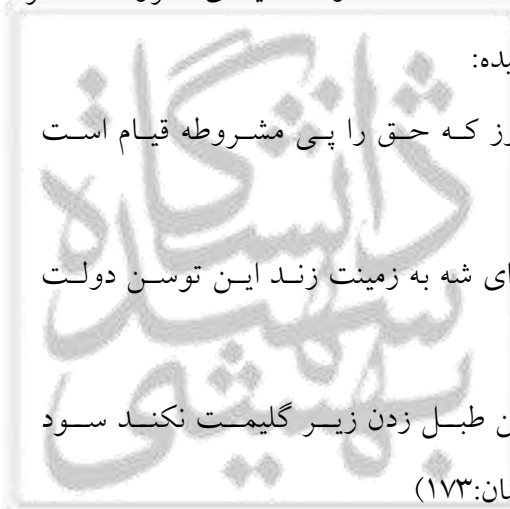 یده:
رز که حق را پی مشروطه قیام است
ای شه به زمینت زند این توسن دولت
ن طبل زدن زیر گلیمت نکند سود
ان:۱۷۳)
دانشگاه
شهید
بهشتی